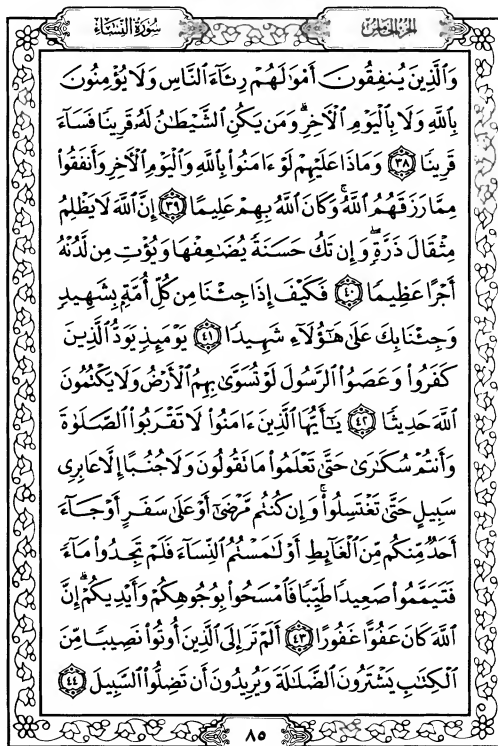 سُورَةُ النِّسَاءِ
الجُزْءُ الخَامِسُ
وَالَّذِينَ يُنفِقُونَ أَمْوَٰلَهُمْ رِئَآءَ النَّاسِ وَلَا يُؤْمِنُونَ
بِاللَّهِ وَلَا بِالْيَوْمِ الْأَخِرِ ۗ وَمَن يَكُنِ الشَّيْطَٰنُ لَهُۥ قَرِينًا فَسَآءَ
قَرِينًا ٣٨ وَمَاذَا عَلَيْهِمْ لَوْ ءَامَنُوا۟ بِاللَّهِ وَالْيَوْمِ الْأَخِرِ وَأَنفَقُوا۟
مِمَّا رَزَقَهُمُ اللَّهُ ۚ وَكَانَ اللَّهُ بِهِمْ عَلِيمًا ٣٩ إِنَّ اللَّهَ لَا يَظْلِمُ
مِثْقَالَ ذَرَّةٍ ۖ وَإِن تَكُ حَسَنَةً يُضَٰعِفْهَا وَيُؤْتِ مِن لَّدُنْهُ
أَجْرًا عَظِيمًا ٤٠ فَكَيْفَ إِذَا جِئْنَا مِن كُلِّ أُمَّةٍۭ بِشَهِيدٍ
وَجِئْنَا بِكَ عَلَىٰ هَٰٓؤُلَآءِ شَهِيدًا ٤١ يَوْمَئِذٍ يَوَدُّ الَّذِينَ
كَفَرُوا۟ وَعَصَوُا۟ الرَّسُولَ لَوْ تُسَوَّىٰ بِهِمُ الْأَرْضُ وَلَا يَكْتُمُونَ
اللَّهَ حَدِيثًا ٤٢ يَٰٓأَيُّهَا الَّذِينَ ءَامَنُوا۟ لَا تَقْرَبُوا۟ الصَّلَوٰةَ
وَأَنتُمْ سُكَٰرَىٰ حَتَّىٰ تَعْلَمُوا۟ مَا تَقُولُونَ وَلَا جُنُبًا إِلَّا عَابِرِى
سَبِيلٍ حَتَّىٰ تَغْتَسِلُوا۟ ۚ وَإِن كُنتُم مَّرْضَىٰٓ أَوْ عَلَىٰ سَفَرٍ أَوْ جَآءَ
أَحَدٌ مِّنكُم مِّنَ الْغَآئِطِ أَوْ لَٰمَسْتُمُ النِّسَآءَ فَلَمْ تَجِدُوا۟ مَآءً
فَتَيَمَّمُوا۟ صَعِيدًا طَيِّبًا فَامْسَحُوا۟ بِوُجُوهِكُمْ وَأَيْدِيكُمْ ۗ إِنَّ
اللَّهَ كَانَ عَفُوًّا غَفُورًا ٤٣ أَلَمْ تَرَ إِلَى الَّذِينَ أُوتُوا۟ نَصِيبًا مِّنَ
الْكِتَٰبِ يَشْتَرُونَ الضَّلَٰلَةَ وَيُرِيدُونَ أَن تَضِلُّوا۟ السَّبِيلَ ٤٤
٨٥